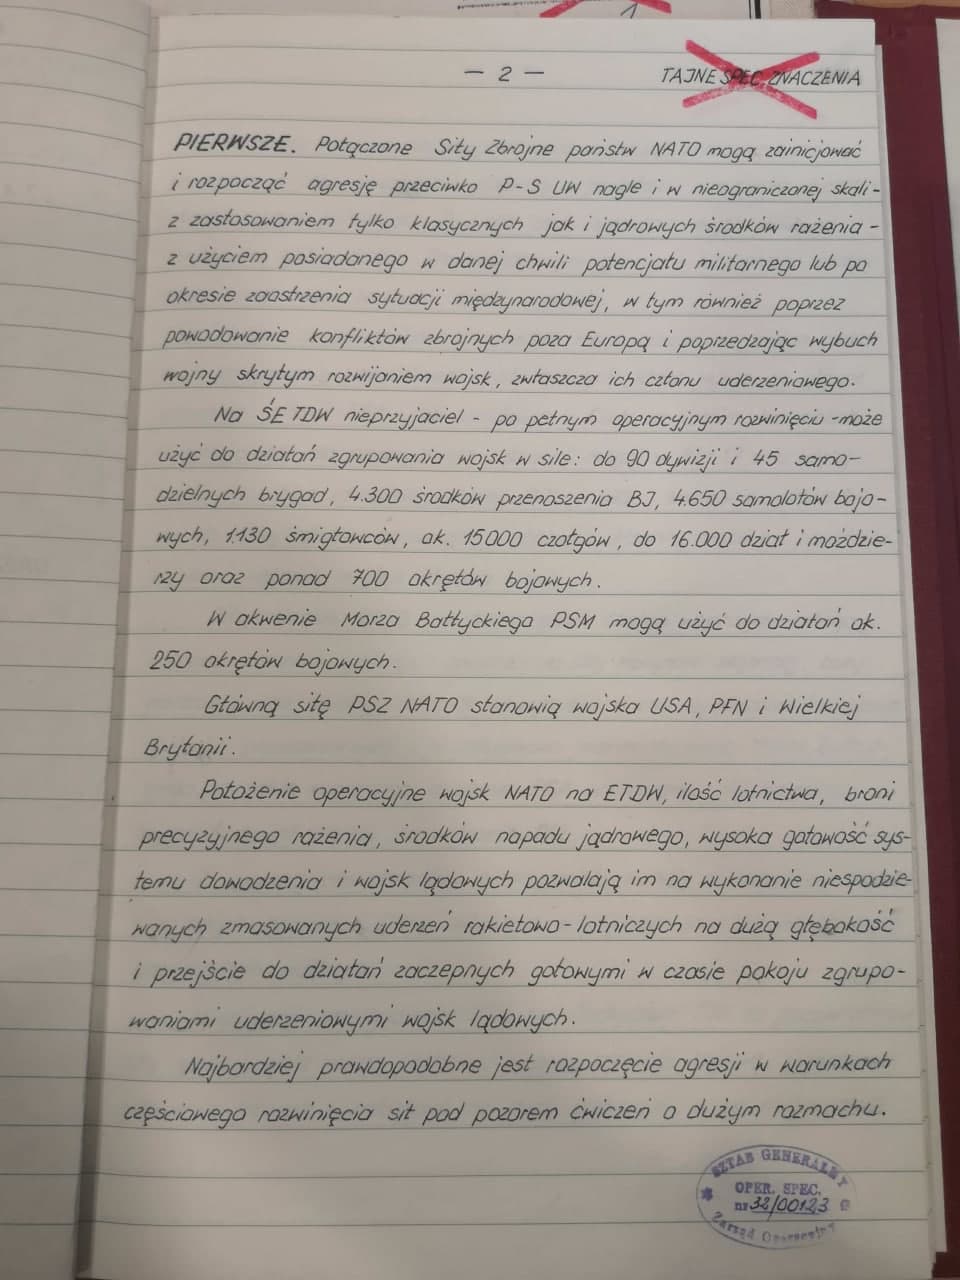 — 2 —
TAJNE SPEC. ZNACZENIA
PIERWSZE. Połączone Siły Zbrojne państw NATO mogą zainicjować
i rozpocząć agresję przeciwko P-S UW nagle i w nieograniczonej skali -
z zastosowaniem tylko klasycznych jak i jądrowych środków rażenia -
z użyciem posiadanego w danej chwili potencjału militarnego lub po
okresie zaostrzenia sytuacji międzynarodowej, w tym również poprzez
powodowanie konfliktów zbrojnych poza Europą i poprzedzając wybuch
wojny skrytym rozwijaniem wojsk, zwłaszcza ich członu uderzeniowego.
Na ŚE TDW nieprzyjaciel - po pełnym operacyjnym rozwinięciu - może
użyć do działań zgrupowania wojsk w sile: do 90 dywizji i 45 samo-
dzielnych brygad, 4.300 środków przenoszenia BJ, 4.650 samolotów bojo-
wych, 1.130 śmigłowców, ok. 15000 czołgów, do 16.000 dział i moździe-
rzy oraz ponad 700 okrętów bojowych.
W akwenie Morza Bałtyckiego PSM mogą użyć do działań ok.
250 okrętów bojowych.
Główną siłę PSZ NATO stanowią wojska USA, PFN i Wielkiej
Brytanii.
Położenie operacyjne wojsk NATO na ETDW, ilość lotnictwa, broni
precyzyjnego rażenia, środków napadu jądrowego, wysoka gotowość sys-
temu dowodzenia i wojsk lądowych pozwalają im na wykonanie niespodzie-
wanych zmasowanych uderzeń rakietowo-lotniczych na dużą głębokość
i przejście do działań zaczepnych gotowymi w czasie pokoju zgrupo-
waniami uderzeniowymi wojsk lądowych.
Najbardziej prawdopodobne jest rozpoczęcie agresji w warunkach
częściowego rozwinięcia sił pod pozorem ćwiczeń o dużym rozmachu.
SZTAB GENERALNY
OPER. SPEC.
nr 32/00123
Zarząd Operacyjny